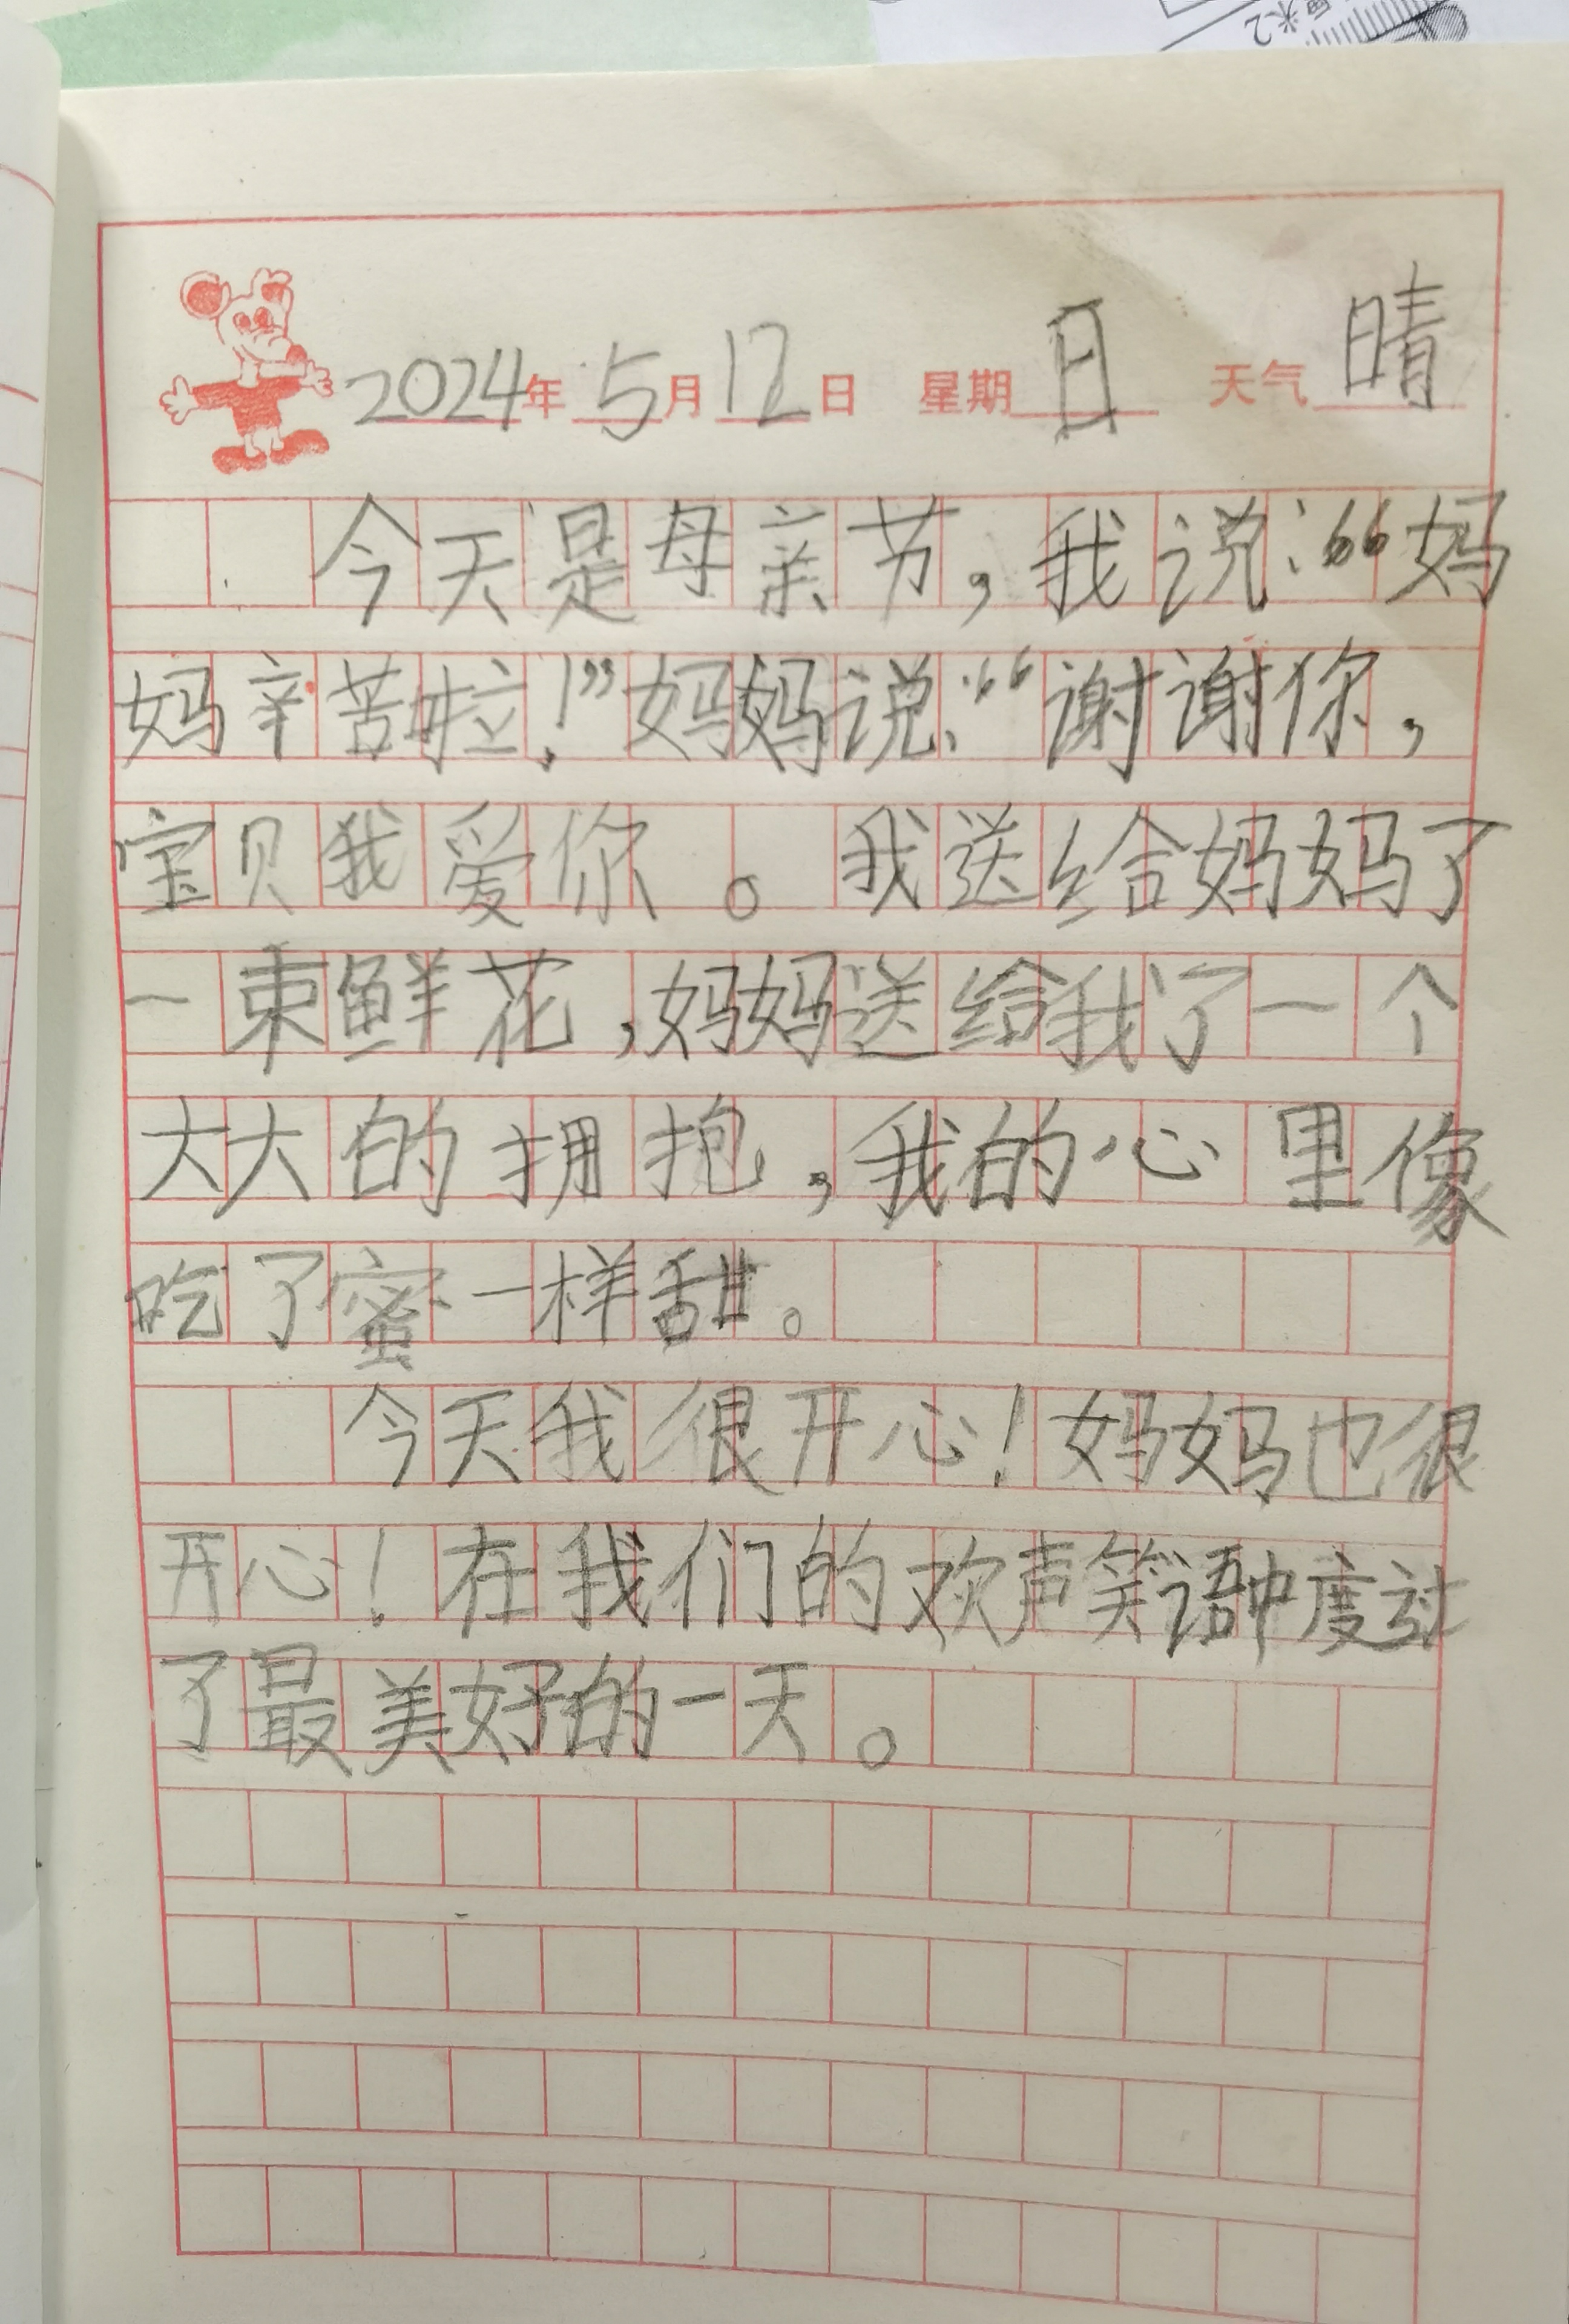 2024年5月12日 星期日 天气晴
今天是母亲节,我说:“妈
妈辛苦啦!”妈妈说:“谢谢你,
宝贝我爱你。我送给妈妈了
一束鲜花,妈妈送给我了一个
大大的拥抱,我的心里像
吃了蜜一样甜。
今天我很开心!妈妈也很
开心!在我们的欢声笑语中度过
了最美好的一天。